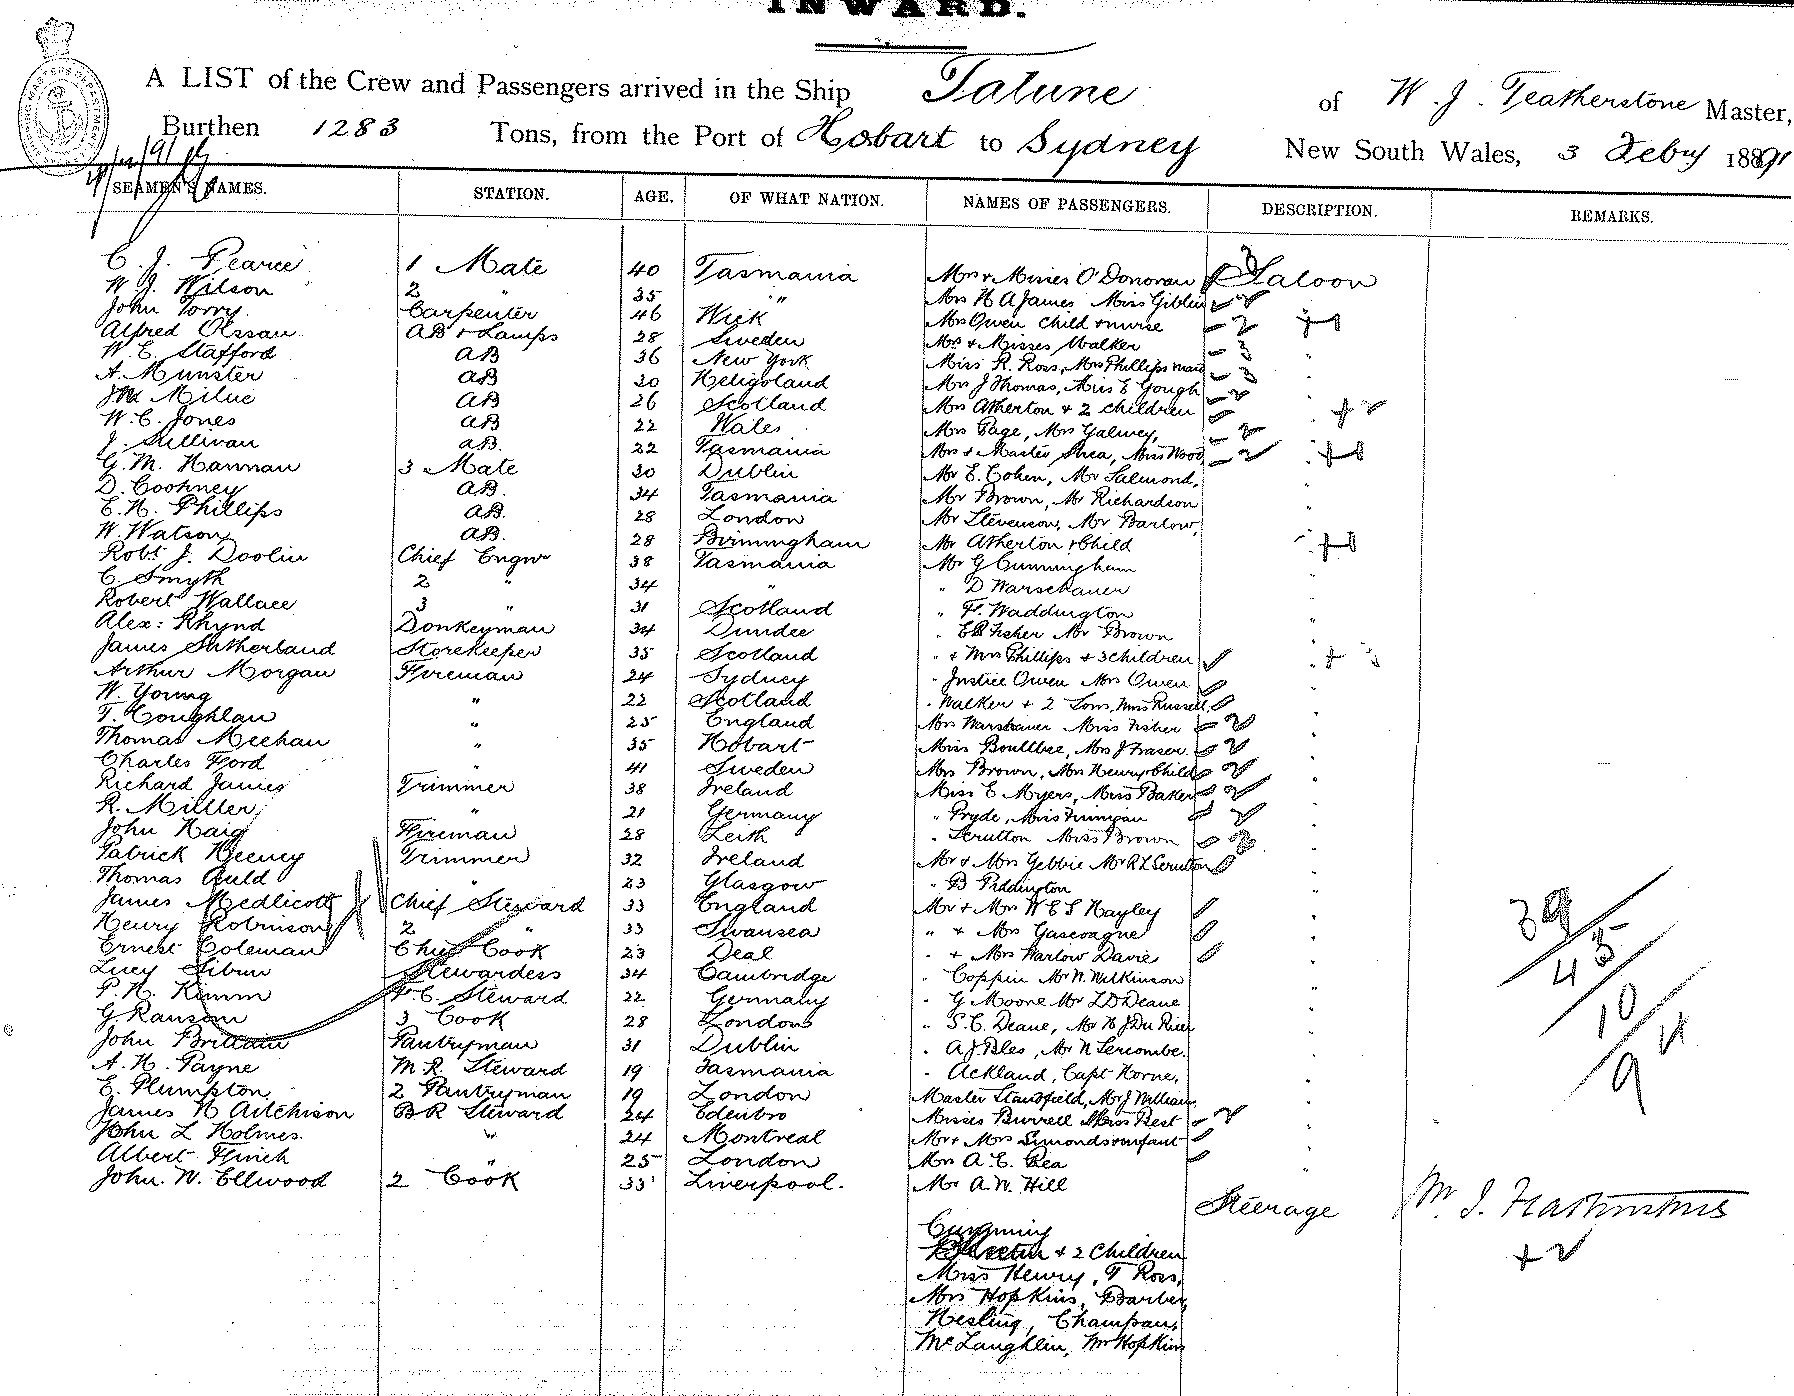 INWARD.
A LIST of the Crew and Passengers arrived in the Ship Talune of W. J. Featherstone Master,
Burthen 1283 Tons, from the Port of Hobart to Sydney New South Wales, 3 Feby 1891
SEAMEN'S NAMES. STATION. AGE. OF WHAT NATION. NAMES OF PASSENGERS. DESCRIPTION. REMARKS.
C. J. Pearce 1 Mate 40 Tasmania Mrs & Misses O'Donovan Saloon
W. J. Wilson 2 " 35 " Mrs H A James Miss Giblin
John Torry Carpenter 46 Wick Mrs Owen child & nurse
Alfred Olssan AB & Lamps 28 Sweden Mr & Misses Walker
W. E. Stafford AB 36 New York Miss R. Ross, Mrs Phillips maid
A. Munster AB 30 Heligoland Mrs J Thomas, Miss E Gough
Milne AB 26 Scotland Mrs Atherton & 2 children
W. C. Jones AB 22 Wales Mrs Page, Mrs Galwey,
J. Sullivan AB. 22 Tasmania Mrs & Master Shea, Miss Wood
G. M. Hannan 3 Mate 30 Dublin Mr E. Cohen, Mr Salmond,
D. Coohney AB. 34 Tasmania Mr Brown, Mr Richardson
E. H. Phillips AB. 28 London Mr Stevenson, Mr Barlow,
W. Watson AB. 28 Birmingham Mr Atherton & Child
Robt J. Doolin Chief Engnr 38 Tasmania Mr G Cunningham
C. Smyth 2 " 34 " " D Warschauer
Robert Wallace 3 " 31 Scotland " F. Waddington
Alex: Rhynd Donkeyman 34 Dundee " Fisher Mr Brown
James Sutherland Storekeeper 35 Scotland " & Mrs Phillips & 3 children
Arthur Morgan Fireman 24 Sydney " Justice Owen Mrs Owen
W. Young " 22 Scotland " Walker & 2 Sons, Mrs Russell
T. Coughlan " 25 England Mrs Warshauer Miss Fisher
Thomas Meehan " 35 Hobart Miss Boultbee, Mrs J Fraser.
Charles Ford " 41 Sweden Mrs Brown, Mrs Henry & Child
Richard James Trimmer 38 Ireland Miss E Myers, Miss Baker
R. Miller " 21 Germany " Pryde, Miss Finnigan
John Haig Fireman 28 Leith " Scrutton Miss Brown
Patrick Heeney Trimmer 32 Ireland Mr & Mrs Gebbie Mr R L Scrutton
Thomas Auld " 23 Glasgow " B Piddington
James Medlicott Chief Steward 33 England Mr & Mrs W E S Hayley
Henry Robinson 2 " 33 Swansea " & Mrs Gascoagne
Ernest Coleman Chief Cook 23 Deal " & Mrs Harlow Davie
Lucy Stewardess 34 Cambridge " Coppin Mr N. Wilkinson
P. H. Kimm F. C. Steward 22 Germany " G Moore Mr L D Deane
G. Ransom 3 Cook 28 London " S. C. Deane, Mr H J Du Rieu
John Brittain Pantryman 31 Dublin " A. J. Bles, Mr N Sercombe.
A. H. Payne M. R. Steward 19 Tasmania " Ackland, Capt Horne,
E. Plumpton 2 Pantryman 19 London Master Stansfield, Mr J William
James H Aitchison BR Steward 24 Edinbro Misses Burrell Miss Best
John L Holmes " 24 Montreal Mr & Mrs Simonds & infant
Albert Finch " 25 London Mr A. E. Rea
John. W. Ellwood 2 Cook 33 Liverpool. Mr A. W. Hill
Steerage
Cumming
& 2 Children
Miss Henry, T Ross,
Mrs Hopkins, Barber,
Hesling, Champau,
McLaughlin, Mr Hopkins
39
45
10
9